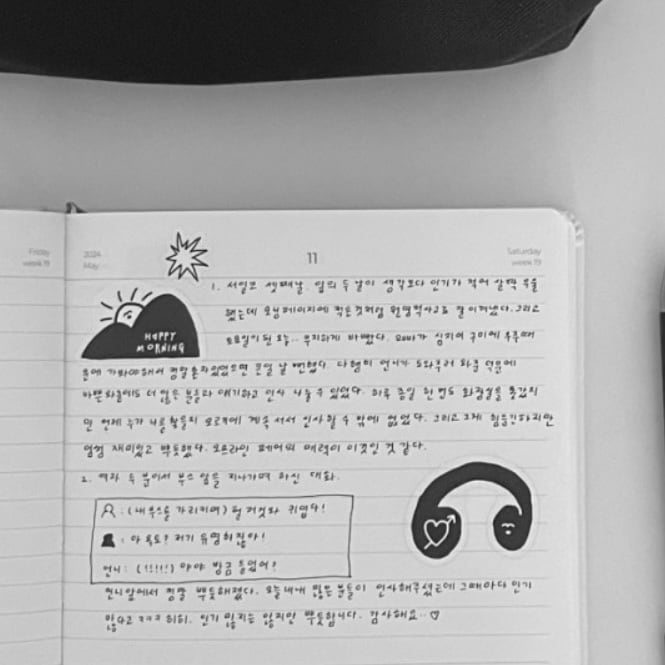 Friday
week 19
2024
May
11
Saturday
week 19
HAPPY
MORNING
1. 서일페 셋째날. 앞의 두 날이 생각보다 인기가 적어 살짝 우울
했는데 오닝페이지에 적은것처럼 원영적사고로 잘 이겨냈다. 그리고
토요일이 된 오늘.. 무지하게 바빴다. 오빠가 심지어 구미에 부부때
문에 가봐야해서 정말 혼자있었으면 큰일 날 뻔했다. 다행히 언니가 도와주러 와준 덕분에
바쁜와중에도 더 많은 분들과 얘기하고 인사 나눌 수 있었다. 하루 종일 한 번도 화장실을 못갔지
만 언제 누가 나를 찾을지 모르기에 계속 서서 인사할 수 밖에 없었다. 그리고 그게 힘들긴하지만
엄청 재미있고 뿌듯했다. 오프라인 페어의 매력이 이것인 것 같다.
2. 여자 두 분이서 부스 앞을 지나가며 하신 대화.
: (내 부스를 가리키며) 헐 저것봐 귀엽다!
: 아 욕도? 저기 유명하잖아!
언니: (!!!!!) 야야 방금 들었어?
언니앞에서 정말 뿌듯해졌다. 오늘내내 많은 분들이 인사해주셨는데 그때마다 인기
많다고 ㅋㅋㅋ 히히. 인기 많지는 않지만 뿌듯합니다. 감사해요..♡